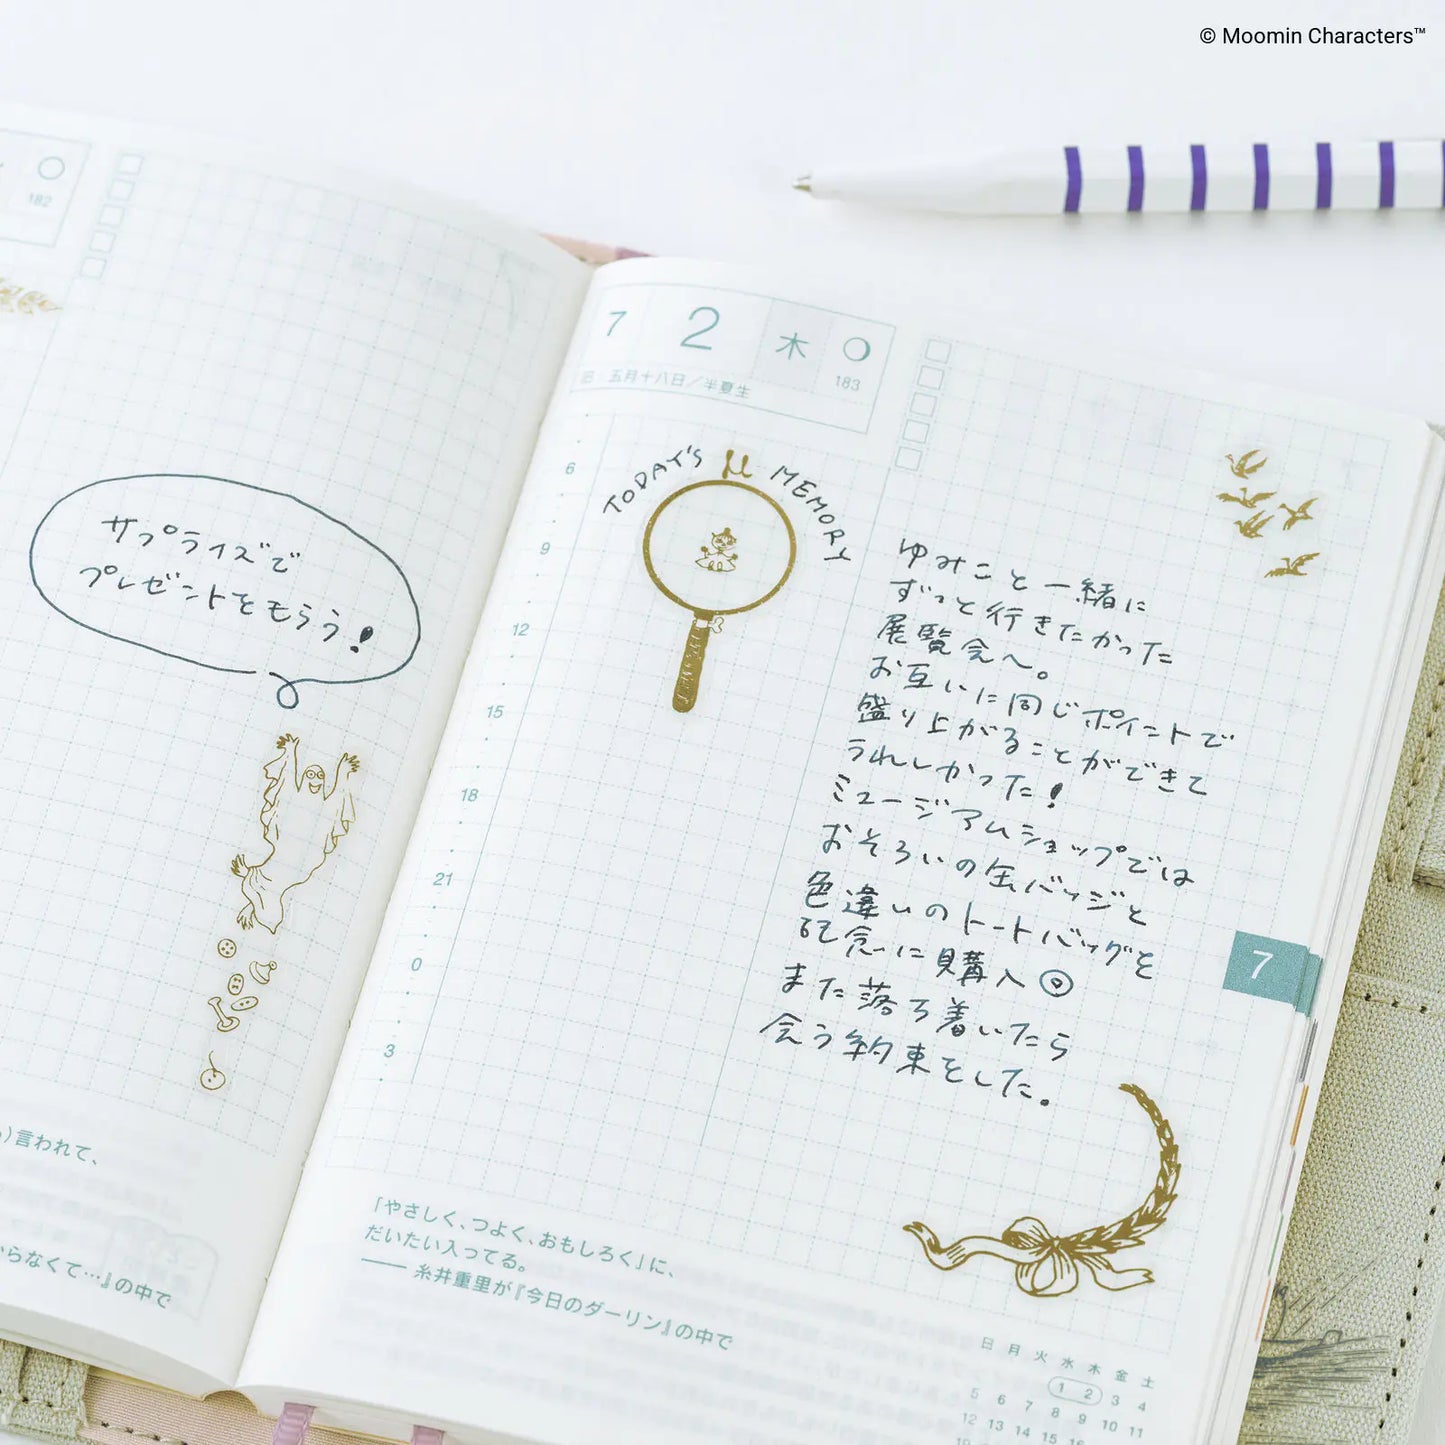 © Moomin Characters™
182
サプライズで
プレゼントをもらう!
言われて、
らなくて…』の中で
7 2 木
183
旧 五月十八日/半夏生
TODAY'S MEMORY
6
9
12
15
18
21
0
3
ゆみこと一緒に
ずっと行きたかった
展覧会へ。
お互いに同じポイントで
盛り上がることができて
うれしかった!
ミュージアムショップでは
おそろいの缶バッジと
色違いのトートバッグを
記念に購入◎
また落ち着いたら
会う約束をした。
7
「やさしく、つよく、おもしろく」に、
だいたい入ってる。
―― 糸井重里が『今日のダーリン』の中で
日 月 火 水 木 金 土
1 2 3 4
5 6 7 8 9 10 11
12 13 14 15 16